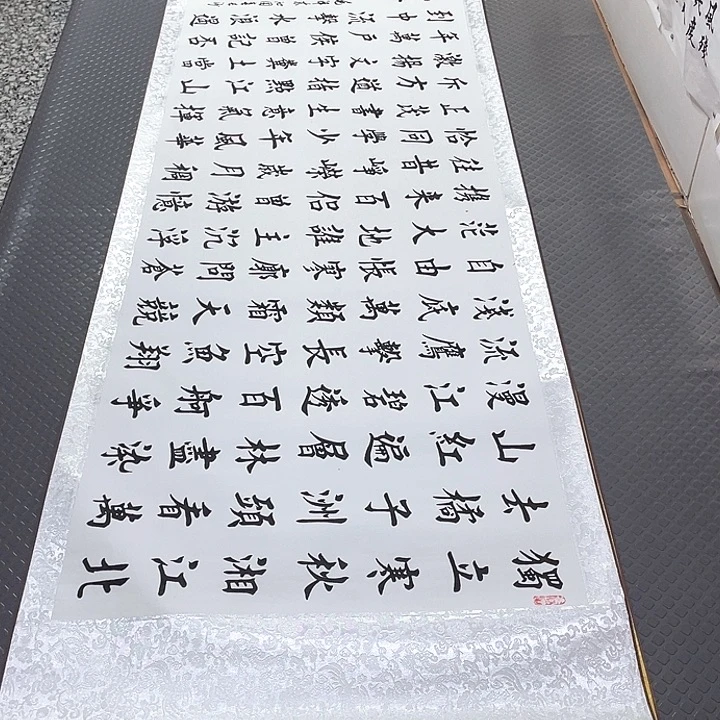 獨立寒秋湘江北
去橘子洲頭看萬
山紅遍層林盡染
漫江碧透百舸爭
流鷹擊長空魚翔
淺底萬類霜天競
自由悵寥廓問蒼
茫大地誰主沉浮
攜來百侶曾游憶
往昔崢嶸歲月稠
恰同學少年風華
正茂書生意氣揮
斥方遒指點江山
激揚文字糞土當
年萬戶侯曾記否
到中流擊水浪遏